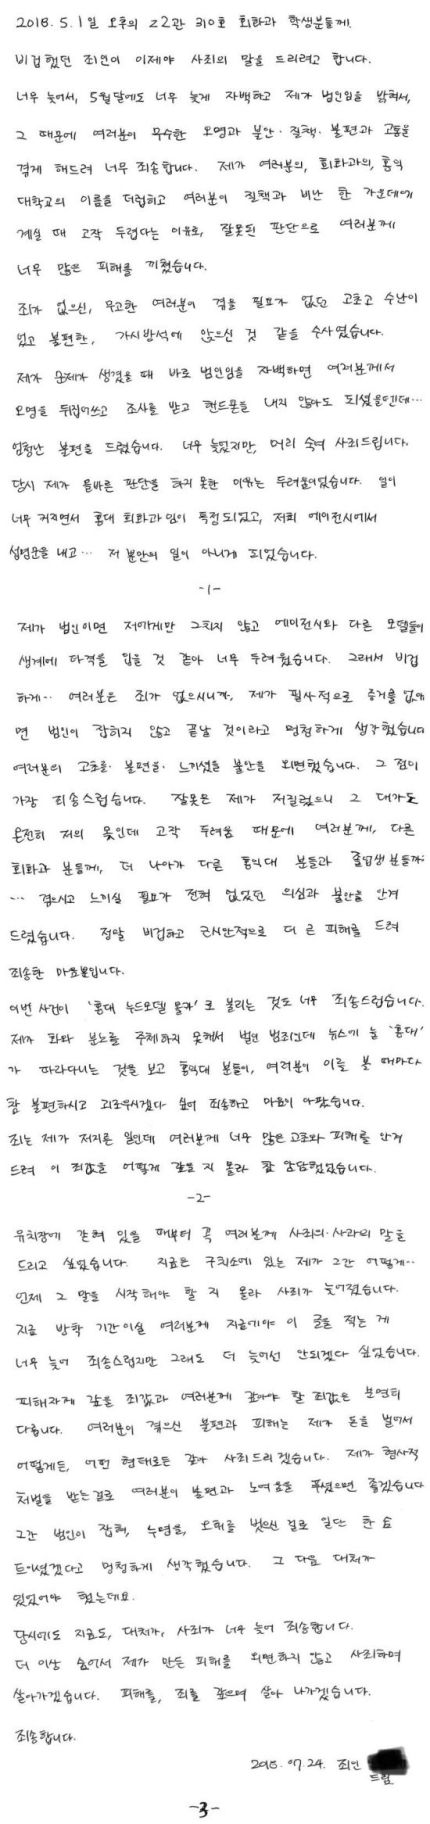 2018. 5. 1일 오후의 Z2관 310호 회화과 학생분들께.
비겁했던 죄인이 이제야 사죄의 말을 드리려고 합니다.
너무 늦어서, 5월달에도 너무 늦게 자백하고 제가 범인임을 밝혀서,
그 때문에 여러분이 무수한 오명과 불안·질책·불편과 고통을
겪게 해드려 너무 죄송합니다. 제가 여러분의, 회화과의, 홍익
대학교의 이름을 더럽히고 여러분이 질책과 비난 한 가운데에
계실 때 고작 두렵다는 이유로, 잘못된 판단으로 여러분께
너무 많은 피해를 끼쳤습니다.
죄가 없으신, 무고한 여러분이 겪을 필요가 없던 고초고 수난이
었고 불편한, 가시방석에 앉으신 것 같을 수사였습니다.
제가 문제가 생겼을 때 바로 범인임을 자백하면 여러분께서
오명을 뒤집어쓰고 조사를 받고 핸드폰을 내지 않아도 되셨을텐데…
엄청난 불편을 드렸습니다. 너무 늦었지만, 머리 숙여 사죄드립니다.
당시 제가 올바른 판단을 하지 못한 이유는 두려움이었습니다. 일이
너무 커지면서 홍대 회화과임이 특정되었고, 저희 에이전시에서
성명문을 내고… 저 혼자만의 일이 아니게 되었습니다.
-1-
제가 범인이면 저에게만 그치지 않고 에이전시와 다른 모델들의
생계에 타격을 입을 것 같아 너무 두려웠습니다. 그래서 비겁
하게… 여러분은 죄가 없으시니까, 제가 필사적으로 증거를 없애
면 범인이 잡히지 않고 끝날 것이라고 멍청하게 생각했습니다
여러분의 고초를·불편을·느끼셨을 불안을 외면했습니다. 그 점이
가장 죄송스럽습니다. 잘못은 제가 저질렀으니 그 대가도
온전히 저의 몫인데 고작 두려움 때문에 여러분께, 다른
회화과 분들께, 더 나아가 다른 홍익대 분들과 졸업생 분들까지
… 겪으시고 느끼실 필요가 전혀 없었던 의심과 불안을 안겨
드렸습니다. 정말 비겁하고 근시안적으로 더 큰 피해를 드려
죄송한 마음뿐입니다.
이번 사건이 '홍대 누드모델 몰카'로 불리는 것도 너무 죄송스럽습니다.
제가 화와 분노를 주체하지 못해서 벌인 범죄인데 뉴스에 늘 '홍대'
가 따라다니는 것을 보고 홍익대 분들이, 여러분이 이를 볼 때마다
참 불편하시고 괴로우시겠다 싶어 죄송하고 마음이 아팠습니다.
죄는 제가 저지른 일인데 여러분께 너무 많은 고초와 피해를 안겨
드려 이 죄값을 어떻게 갚을 지 몰라 참 암담했었습니다.
-2-
유치장에 갇혀 있을 때부터 꼭 여러분께 사죄의·사과의 말을
드리고 싶었습니다. 지금은 구치소에 있는 제가 그간 어떻게…
언제 그 말을 시작해야 할 지 몰라 사죄가 늦어졌습니다.
지금 방학 기간이실 여러분께 지금에야 이 글을 적는 게
너무 늦어 죄송스럽지만 그래도 더 늦어선 안되겠다 싶었습니다.
피해자께 갚을 죄값과 여러분께 갚아야 할 죄값은 분명히
다릅니다. 여러분이 겪으신 불편과 피해는 제가 돈을 벌어서
어떻게든, 어떤 형태로든 갚아 사죄드리겠습니다. 제가 형사적
처벌을 받는걸로 여러분이 불편과 노여움을 푸셨으면 좋겠습니다
그간 범인이 잡혀, 누명을, 오해를 벗으신 걸로 일단 한 숨
트이셨겠다고 멍청하게 생각했습니다. 그 다음 대처가
있었어야 했는데요.
당시에도 지금도, 대처가, 사죄가 너무 늦어 죄송합니다.
더 이상 숨어서 제가 만든 피해를 외면하지 않고 사죄하며
살아가겠습니다. 피해를, 죄를 갚으며 살아 나가겠습니다.
죄송합니다.
2018. 07. 24. 죄인
드림
-3-